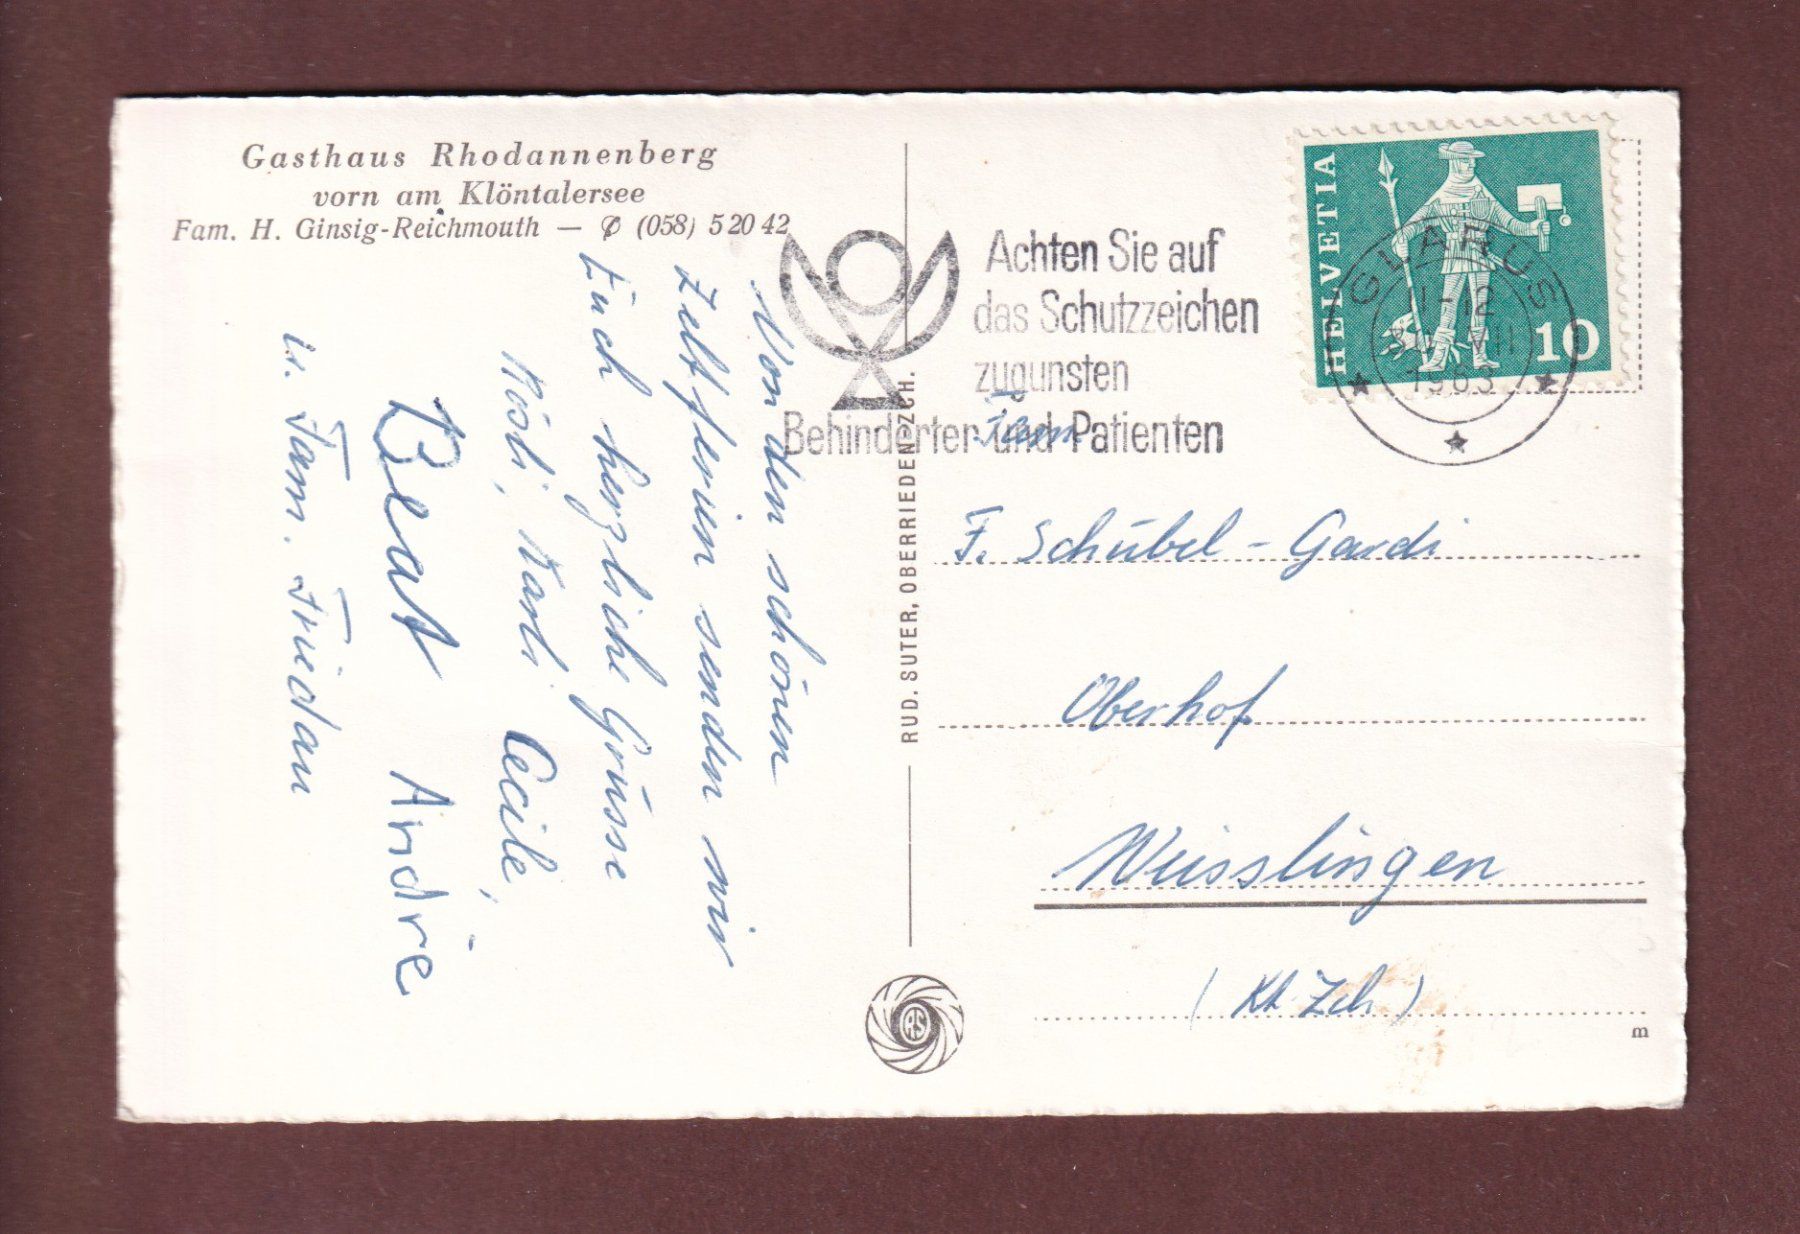 Gasthaus Rhodannenberg
vorn am Klöntalersee
Fam. H. Ginsig-Reichmouth — ✆ (058) 5 20 42
Von den schönen
Zeltferien senden wir
Euch herzliche Grüsse
Rösli, Karli Cecile,
Beat André
u. Fam. Friedau
RUD. SUTER, OBERRIEDEN-ZCH.
RS
Achten Sie auf
das Schutzzeichen
zugunsten
Behinderter und Patienten
HELVETIA
10
GLARUS
11-12
VII
1963
Fam
F. Schübel - Gardi
Oberhof
Weisslingen
(Kt. Zch)
m